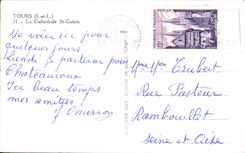 TOURS (I.-et-L.)
21 - La Cathédrale St-Gatien
De voici ici pour
quelques jours
Lundi je partirai pour
Chateauroux
Ici beau temps
mes amitiés
Mme Mme Trubert
Rue Pasteur
Rambouillet
Seine et Oise